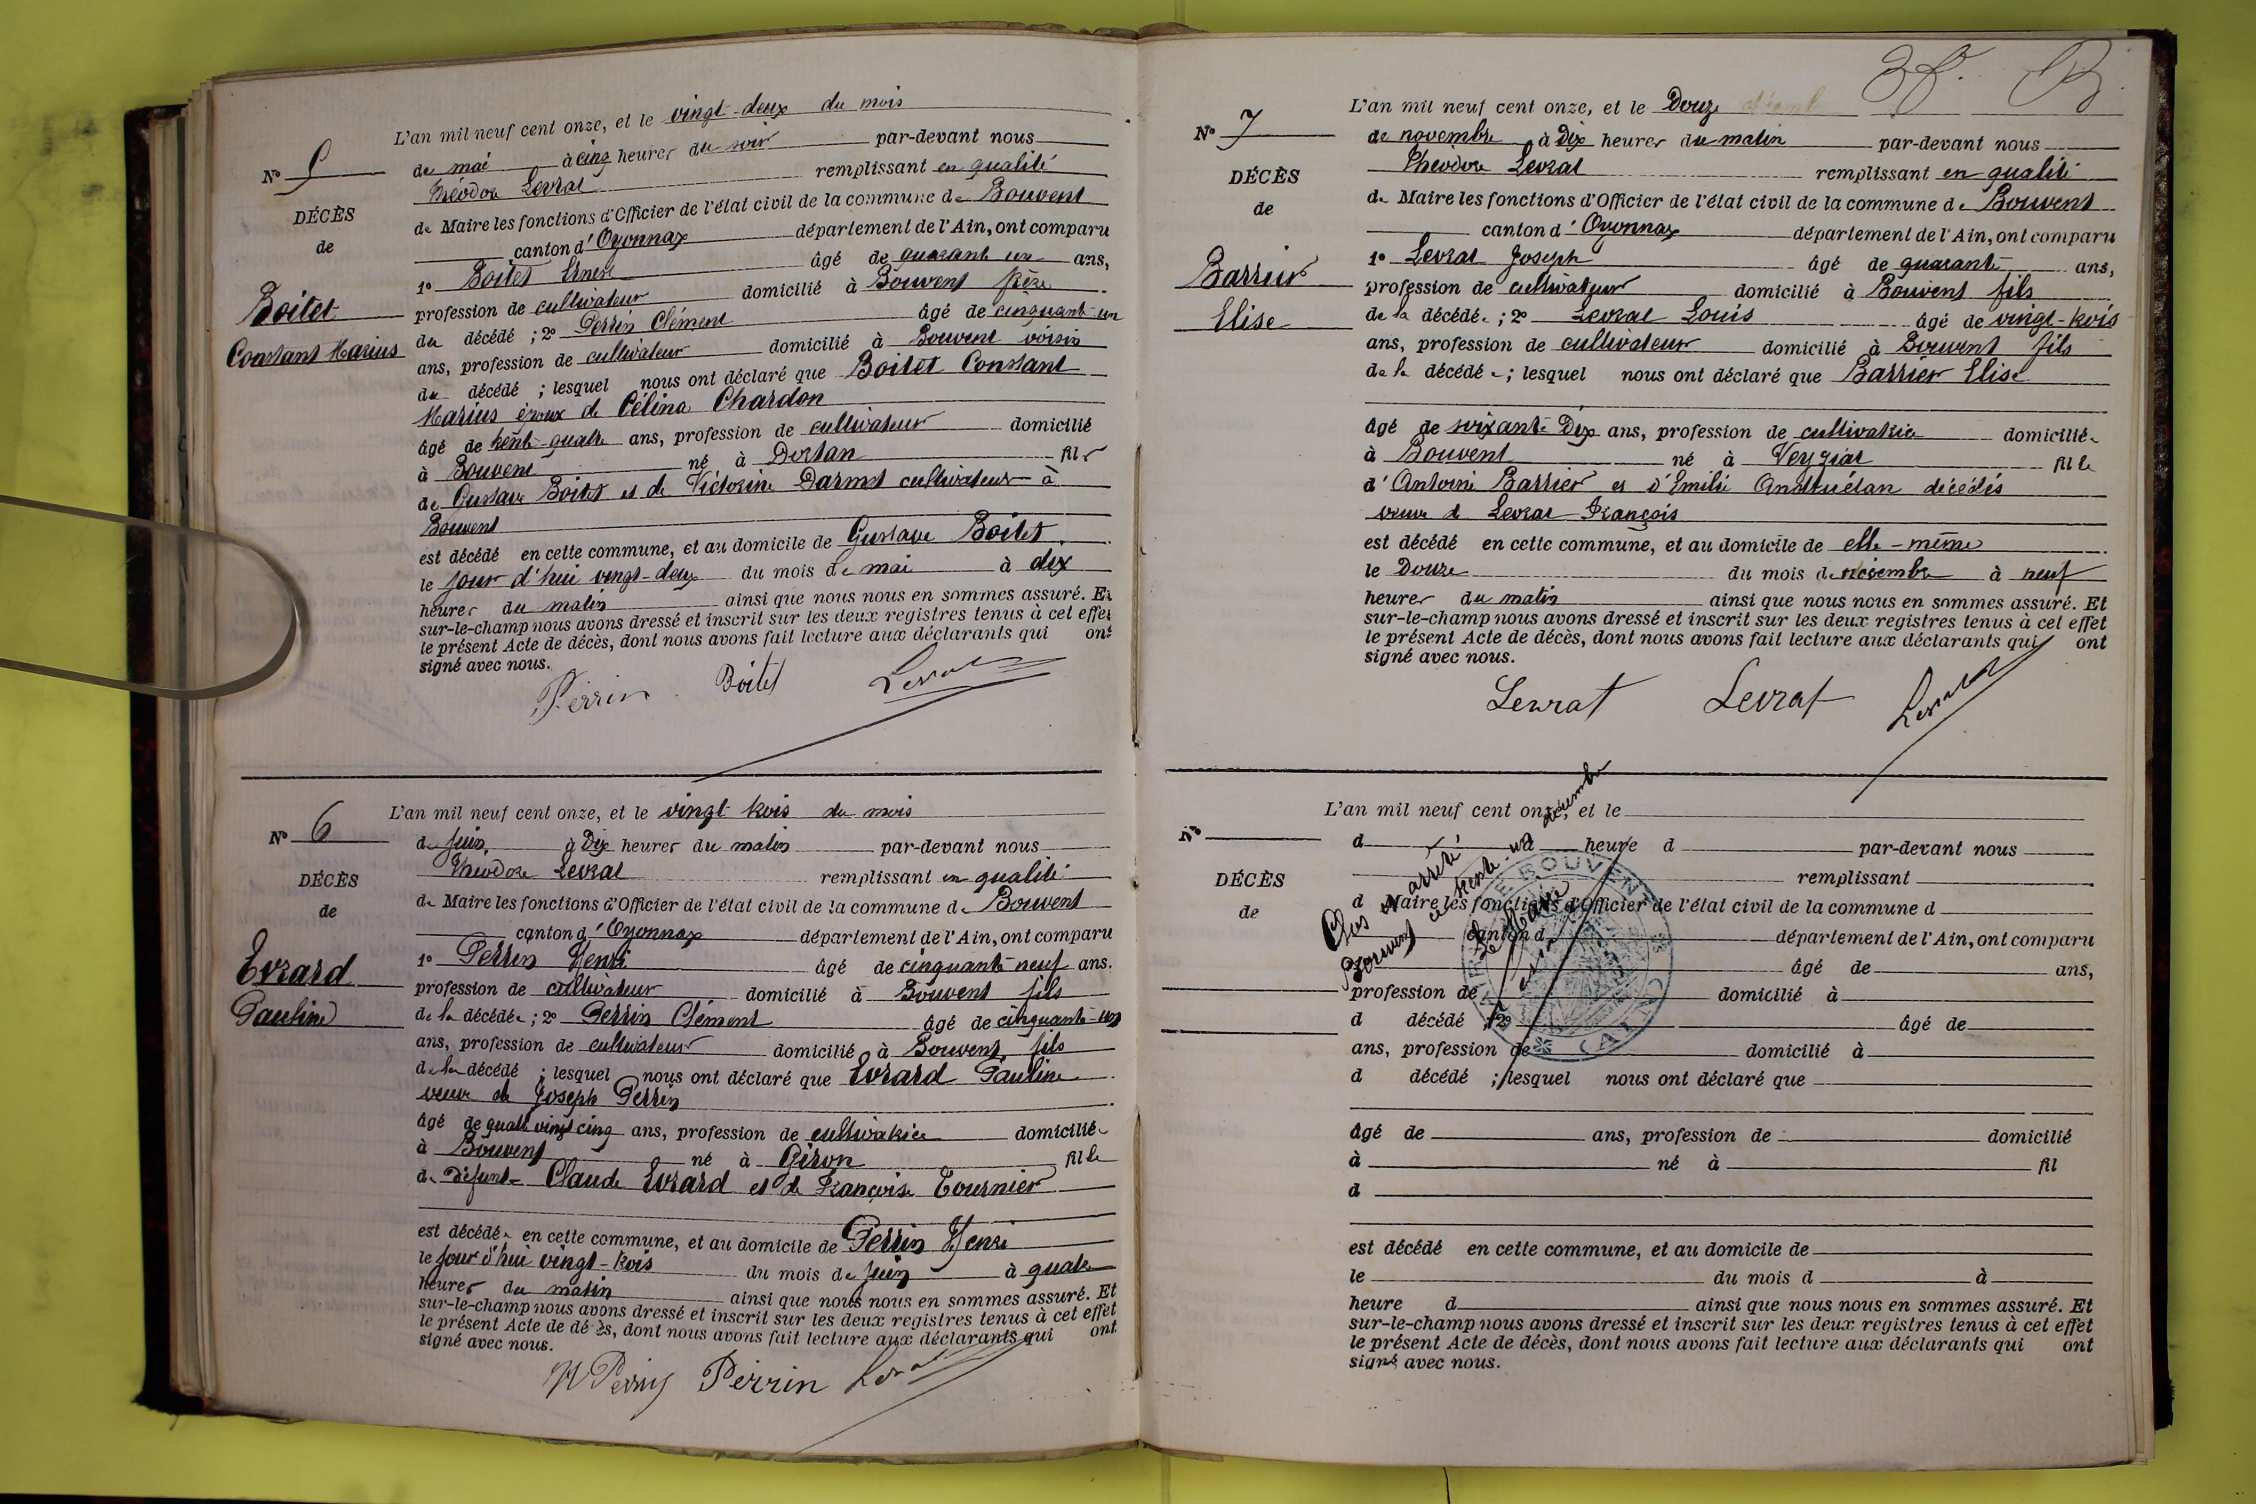 L'an mil neuf cent onze, et le vingt-deux du mois
N° 5
de mai à cinq heures du soir par-devant nous
Théodore Levrat remplissant en qualité
DÉCÈS
de Maire les fonctions d'Officier de l'état civil de la commune de Bouvent
de
canton d'Oyonnax département de l'Ain, ont comparu
1° Boitet Ernest âgé de quarante un ans,
Boitet
profession de cultivateur domicilié à Bouvent frère
Constant Marius
du décédé ; 2° Perrin Clément âgé de cinquante-un
ans, profession de cultivateur domicilié à Bouvent voisin
du décédé ; lesquel nous ont déclaré que Boitet Constant
Marius époux de Célina Chardon
âgé de trente-quatre ans, profession de cultivateur domicilié
à Bouvent né à Dortan fils
de Gustave Boitet et de Victorine Darmet cultivateurs à
Bouvent
est décédé en cette commune, et au domicile de Gustave Boitet
le jour d'hui vingt-deux du mois de mai à dix
heures du matin ainsi que nous nous en sommes assuré. Et
sur-le-champ nous avons dressé et inscrit sur les deux registres tenus à cet effet
le présent Acte de décès, dont nous avons fait lecture aux déclarants qui ont
signé avec nous.
Perrin Boitet Levrat
L'an mil neuf cent onze, et le vingt trois du mois
N° 6
de juin, à Dix heures du matin par-devant nous
Théodore Levrat remplissant en qualité
DÉCÈS
de Maire les fonctions d'Officier de l'état civil de la commune de Bouvent
de
canton d'Oyonnax département de l'Ain, ont comparu
1° Perrin Henri âgé de cinquante-neuf ans.
Evrard
profession de cultivateur domicilié à Bouvent fils
Pauline
de la décédée ; 2° Perrin Clément âgé de cinquante-un
ans, profession de cultivateur domicilié à Bouvent, fils
de la décédé ; lesquel nous ont déclaré que Evrard Pauline
veuve de Joseph Perrin
âgé de quatre vingt cinq ans, profession de cultivatrice domiciliée
à Bouvent né à Giron fille
de défunts Claude Evrard et de Françoise Tournier
est décédée en cette commune, et au domicile de Perrin Henri
le jour d'hui vingt-trois du mois de juin à quatre
heures du matin ainsi que nous nous en sommes assuré. Et
sur-le-champ nous avons dressé et inscrit sur les deux registres tenus à cet effet
le présent Acte de dé ès, dont nous avons fait lecture aux déclarants qui ont
signé avec nous.
H Perrin Perrin Levrat
L'an mil neuf cent onze, et le Douze
N° 7
de novembre à Dix heures du matin par-devant nous
Théodore Levrat remplissant en qualité
DÉCÈS
de Maire les fonctions d'Officier de l'état civil de la commune de Bouvent
de
canton d'Oyonnax département de l'Ain, ont comparu
1° Levrat Joseph âgé de quarante ans,
Barrier
profession de cultivateur domicilié à Bouvent fils
Elise
de la décédée ; 2° Levrat Louis âgé de vingt-trois
ans, profession de cultivateur domicilié à Bouvent fils
de la décédée ; lesquel nous ont déclaré que Barrier Elise
âgé de soixante-Dix ans, profession de cultivatrice domiciliée
à Bouvent né à Veyziat fille
d'Antoine Barrier et d'Emilie décédés
veuve de Levrat François
est décédé en cette commune, et au domicile de elle-même
le Douze du mois de à neuf
heures du matin ainsi que nous nous en sommes assuré. Et
sur-le-champ nous avons dressé et inscrit sur les deux registres tenus à cet effet
le présent Acte de décès, dont nous avons fait lecture aux déclarants qui ont
signé avec nous.
Levrat Levrat Levrat
L'an mil neuf cent onze, et le
N°
d à heure d par-devant nous
remplissant
DÉCÈS
d Maire les fonctions d'Officier de l'état civil de la commune d
de
canton d département de l'Ain, ont comparu
âgé de ans,
profession de domicilié à
d décédé ; 2° âgé de
ans, profession de domicilié à
d décédé ; lesquel nous ont déclaré que
âgé de ans, profession de domicilié
à né à fil
d
est décédé en cette commune, et au domicile de
le du mois d à
heure d ainsi que nous nous en sommes assuré. Et
sur-le-champ nous avons dressé et inscrit sur les deux registres tenus à cet effet
le présent Acte de décès, dont nous avons fait lecture aux déclarants qui ont
signé avec nous.
Clos et arrêté
Bouvent ce trente-un décembre
Le Maire
Levrat
MAIRIE DE BOUVENT